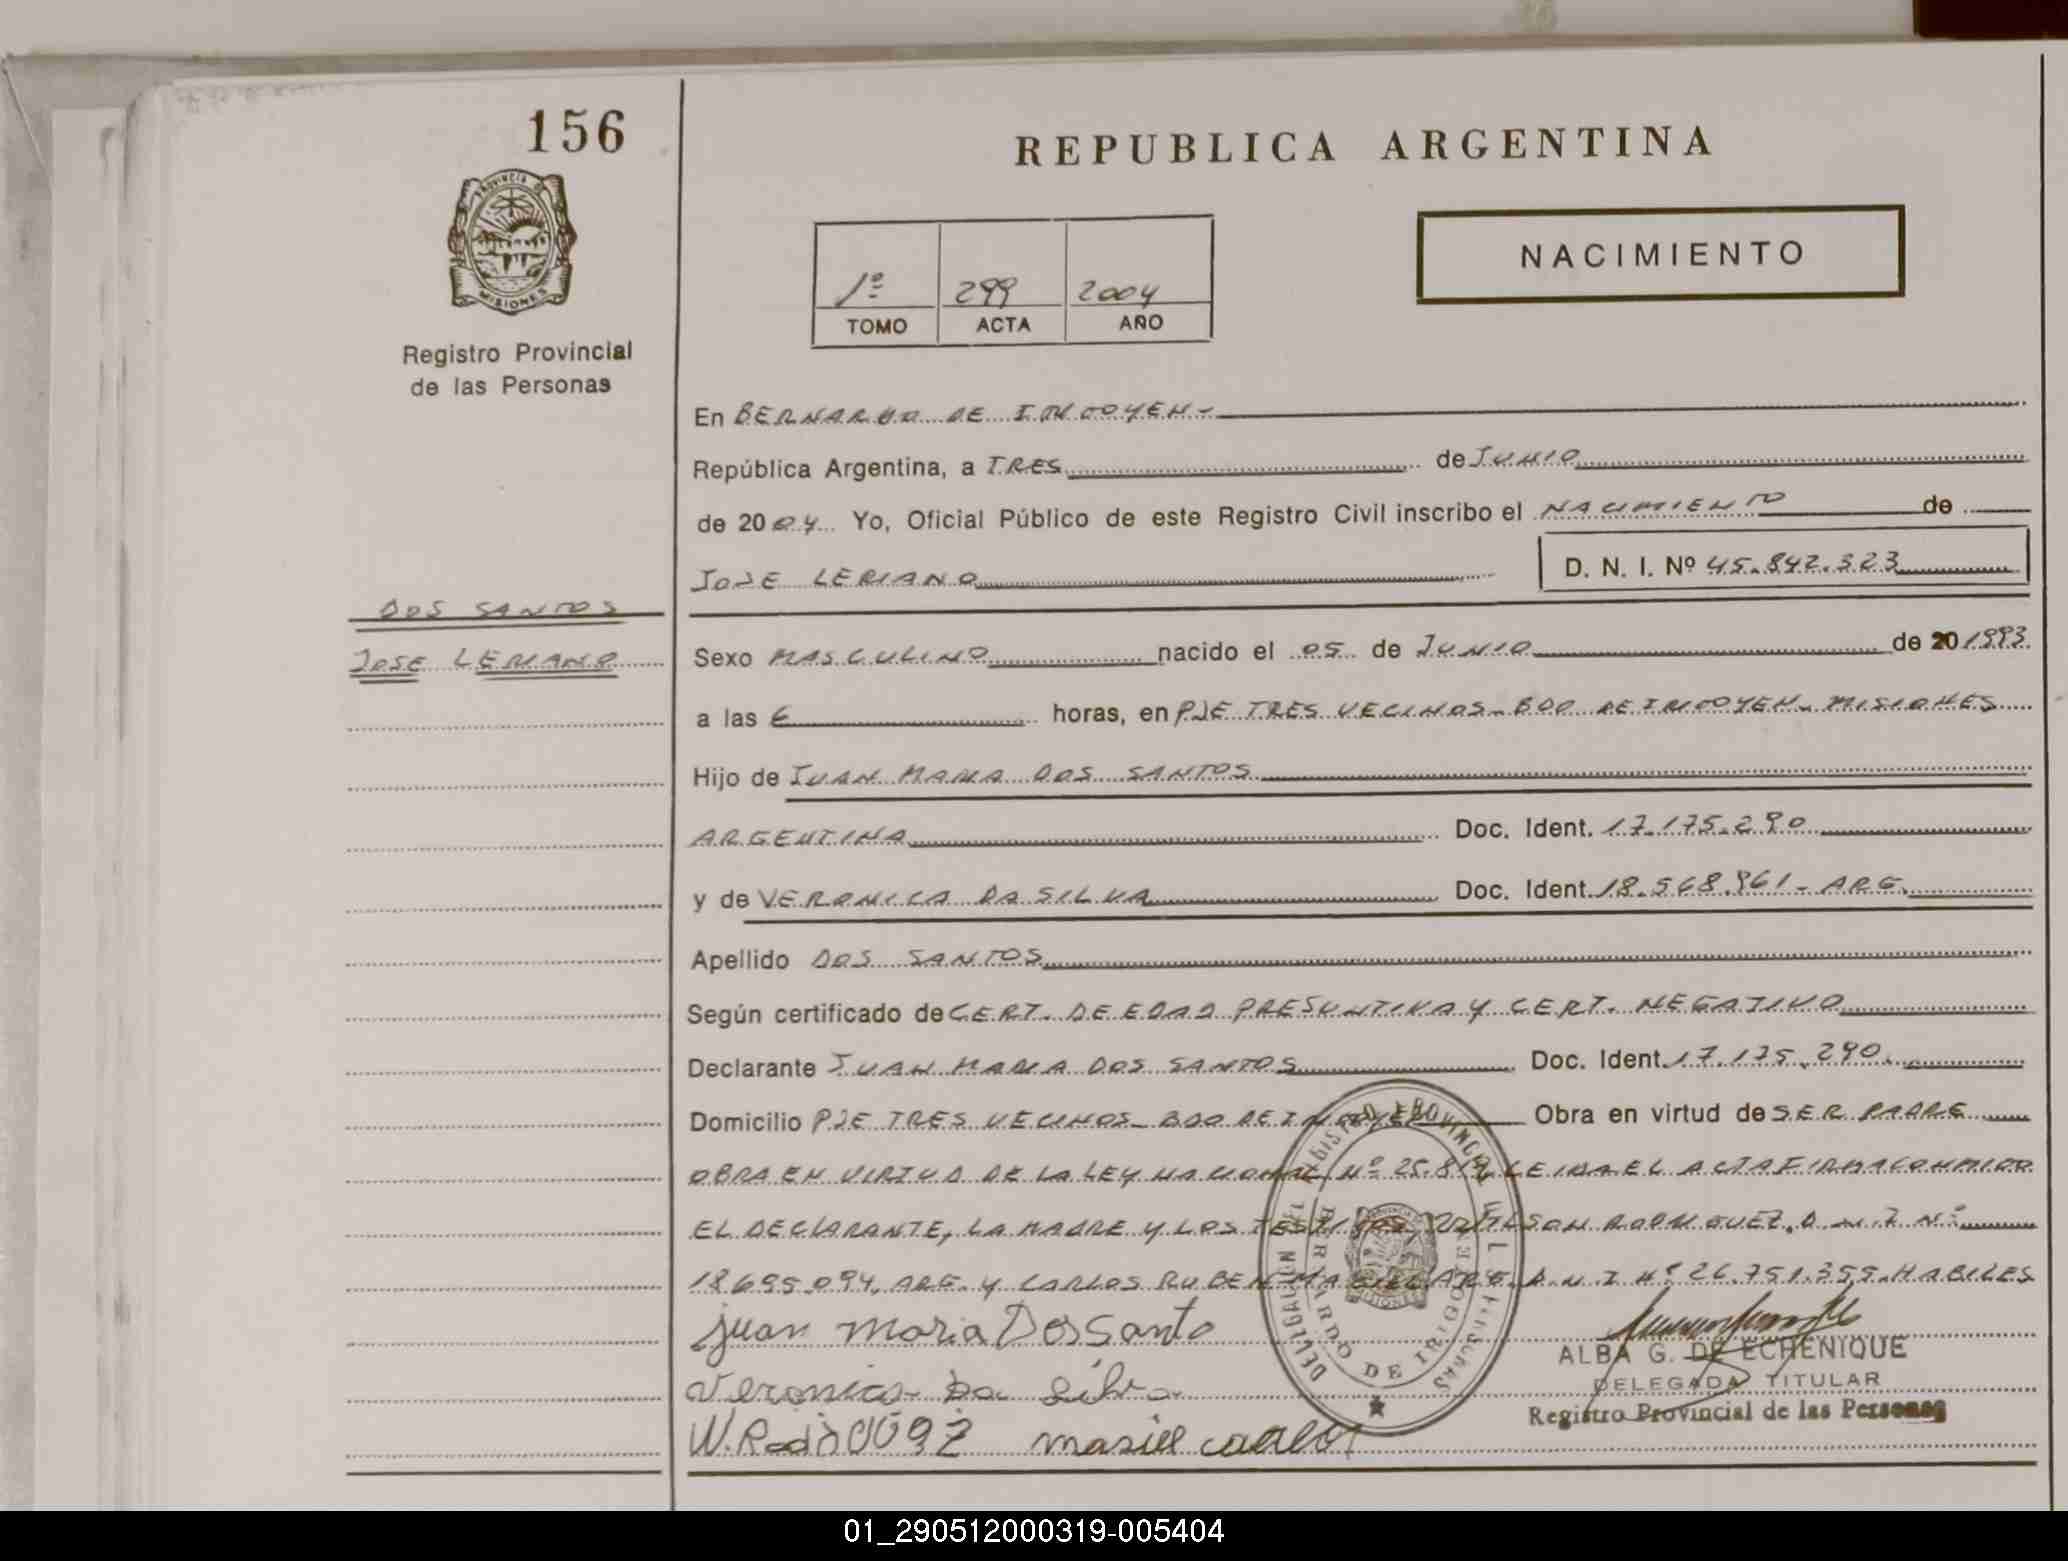 156
REPUBLICA ARGENTINA
PROVINCIA DE
MISIONES
NACIMIENTO
1º 299 2004
TOMO ACTA AÑO
Registro Provincial
de las Personas
En BERNARDO DE IRIGOYEN.-
República Argentina, a TRES de JUNIO
de 2004 Yo, Oficial Público de este Registro Civil inscribo el NACIMIENTO de
JOSE LERIANO D. N. I. Nº 45.842.323
DOS SANTOS
JOSE LERIANO
Sexo MASCULINO nacido el 05 de JUNIO de 20 1993
a las 6 horas, en PJE TRES VECINOS - BDO DE IRIGOYEN - MISIONES
Hijo de JUAN MARIA DOS SANTOS
ARGENTINA Doc. Ident. 17.175.290
y de VERONICA DA SILVA Doc. Ident. 18.568.961 - ARG.
Apellido DOS SANTOS
Según certificado de CERT. DE EDAD PRESUNTIVA Y CERT. NEGATIVO
Declarante JUAN MARIA DOS SANTOS Doc. Ident. 17.175.290.
Domicilio PJE TRES VECINOS - BDO DE IRIGOYEN Obra en virtud de SER PADRE
OBRA EN VIRTUD DE LA LEY NACIONAL Nº 25.819 LEIDA EL ACTA FIRMA CONMIGO
EL DECLARANTE, LA MADRE Y LOS TESTIGOS RODRIGUEZ. D N I Nº
18.695.094. ARG. Y CARLOS RUBEN MASIEL ARG. D N I Nº 26.751.355. HABILES
juan maria Dos Santo
veronica da silva
ALBA G. DE ECHENIQUE
DELEGADA TITULAR
Registro Provincial de las Personas
W. Rodrigues masiel carlos
BERNARDO DE IRIGOYEN
01_290512000319-005404